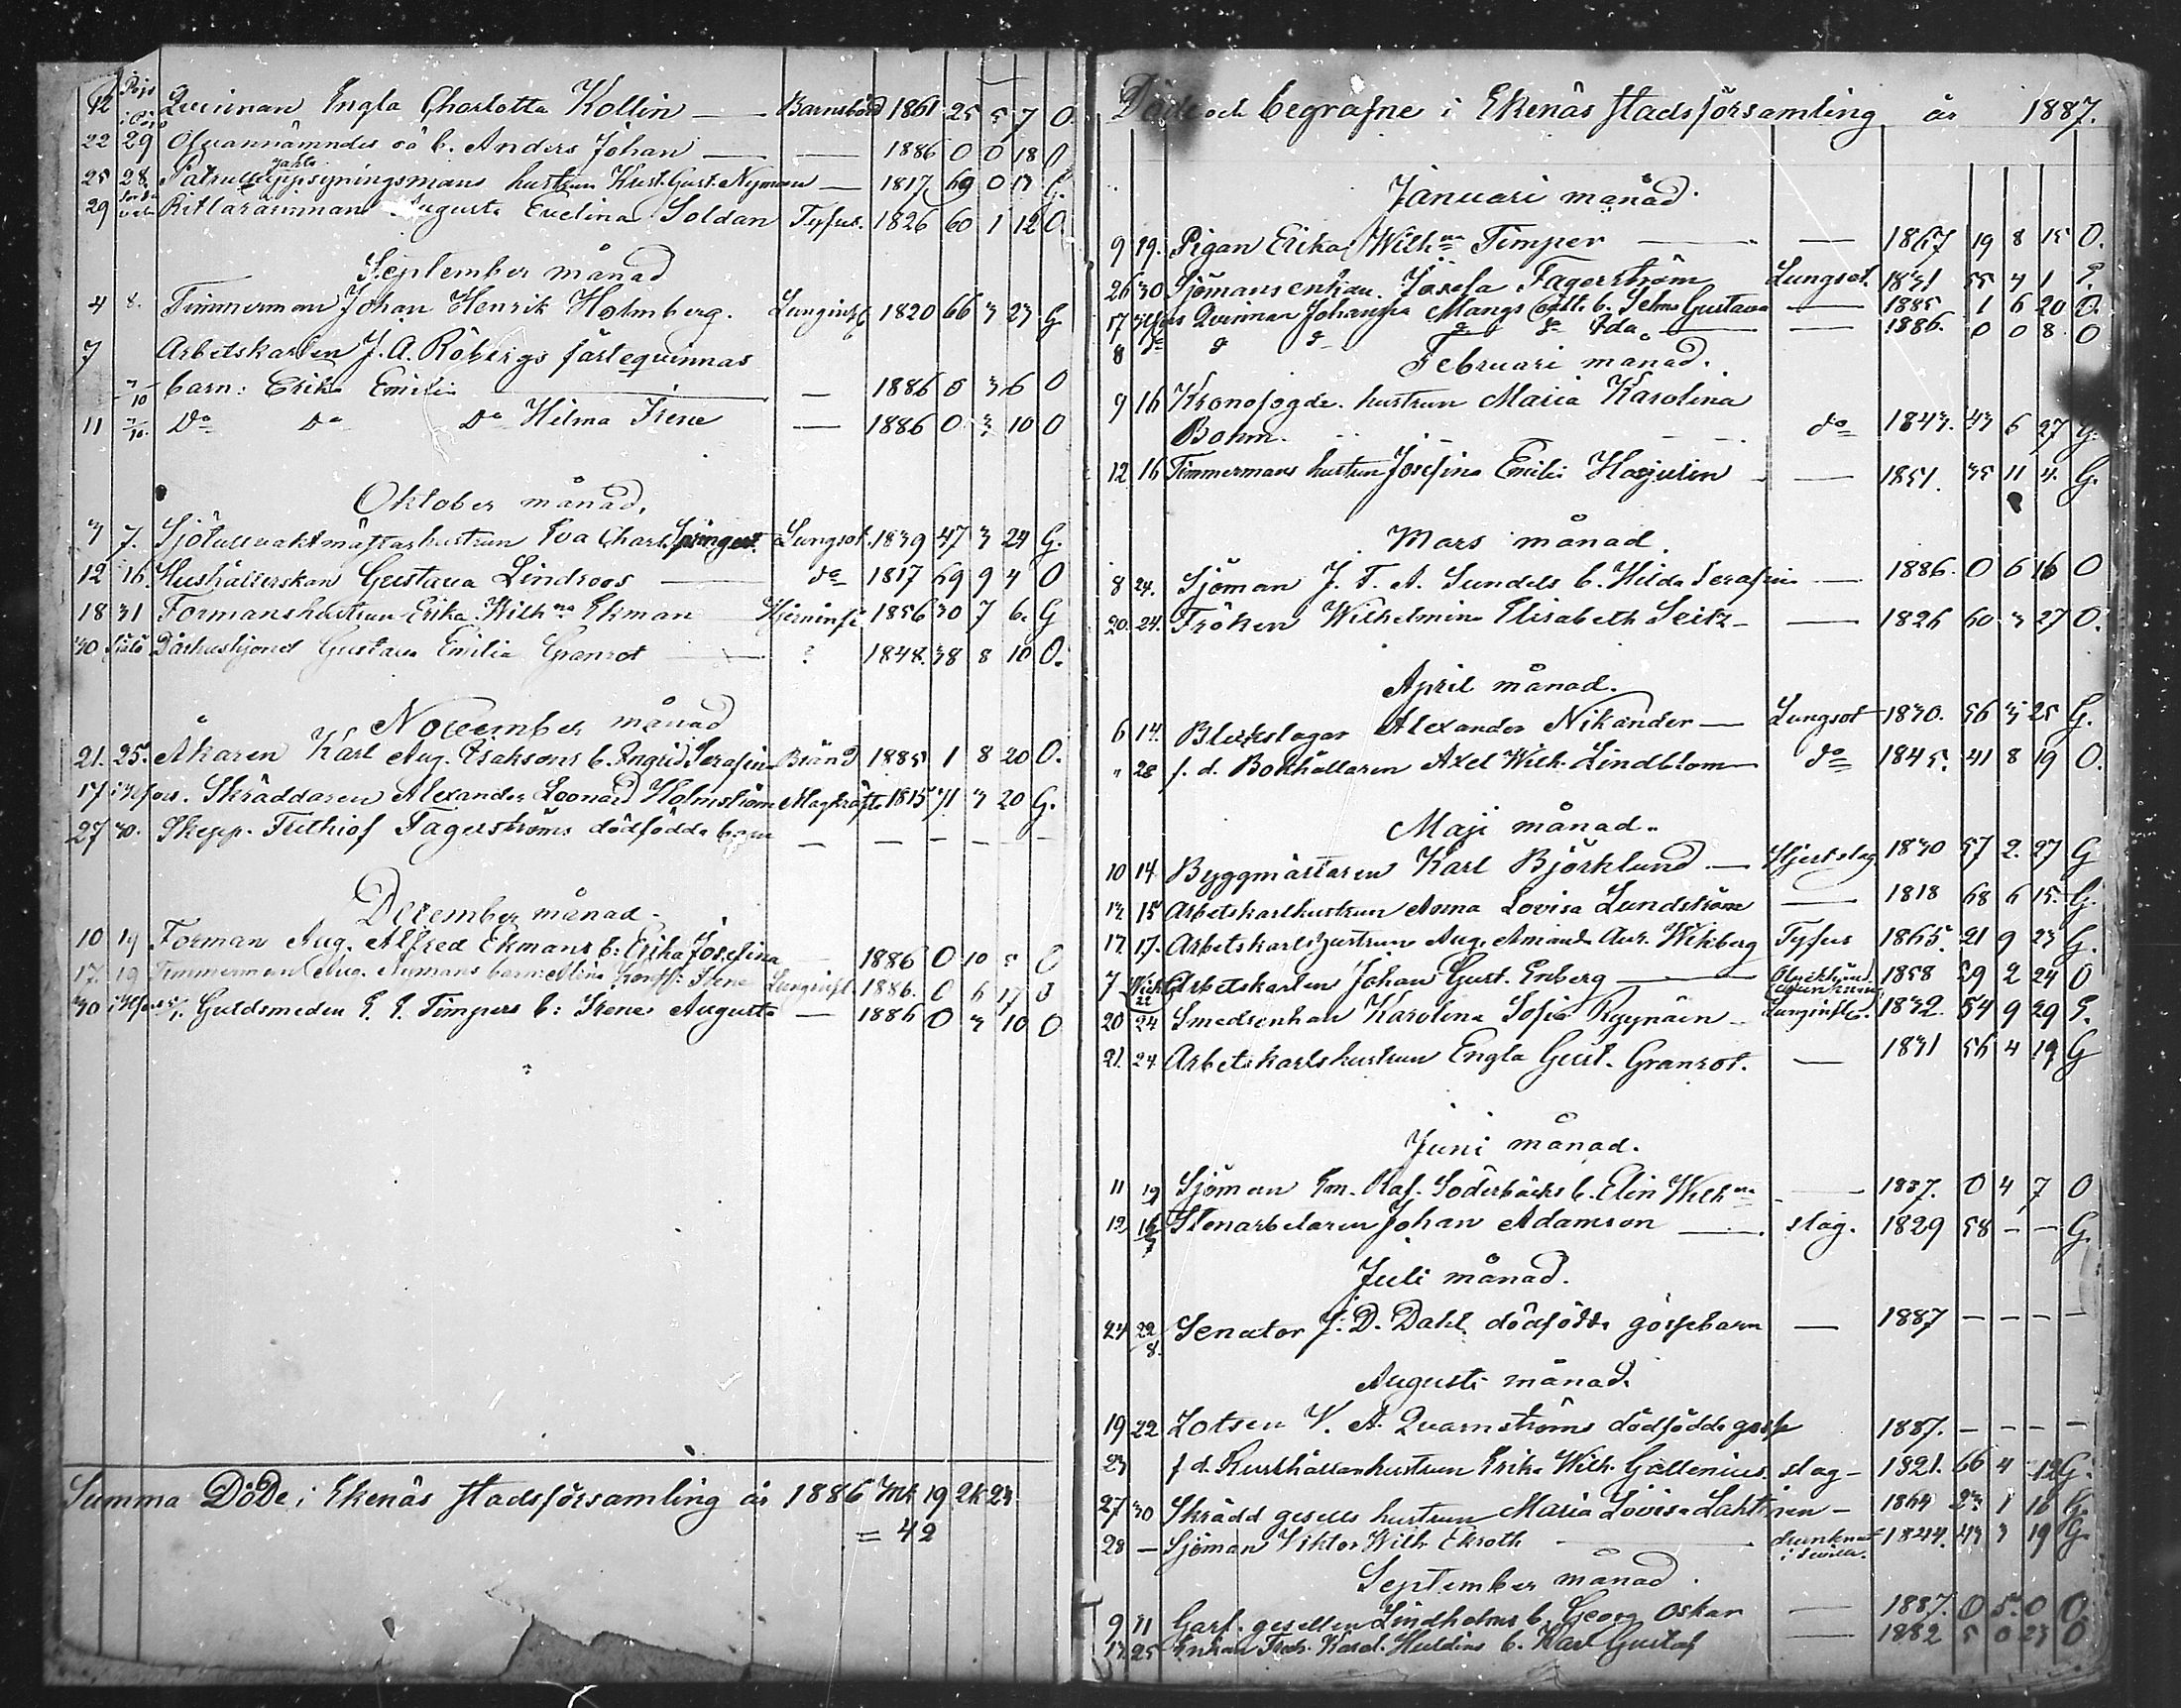 12 Qvinnan Engla Charlotta Kollin — Barnsbörd 1861 25 5 7 O.
22 29 Ofvannämndes oä b. Anders Johan — — 1886 0 0 18 O
25 28 hustrun Krist. Gust. Nyman — 1817 69 0 13
29 Augusta Evelina Soldan Tyfus. 1826 60 1 12 O.
September månad
4 8. Timmerman Johan Henrik Holmberg. Lunginfl 1820 66 3 23 G
7 Arbetskarlen J. A. Röbergs färlequinnas
7/10 barn: Erika Emilia — 1886 0 3 6 O
11 7/10. Do Do Do Hilma Irene — 1886 0 3 10 O
Oktober månad,
3 7. Sjötullvaktmästarhustrun Eva Charl. Lungsot. 1839 47 3 24 G.
12 16. Hushållerskan Gustava Lindroos — do 1817 69 9 4 O
18 31 Formanshustrun Erika Wilhna Ekman Hjerninfl 1856 30 7 6. G
30 Själö Dårhushjonet Gustava Emilia Granrot — ? 1848. 38 8 10 O.
November månad
21. 25. Åkaren Karl Aug. Isaksons b. Ingrid Serafina Bränd 1885 1 8 20 O.
17 i Hfors. Skräddaren Alexander Leonard Holmström Magkräfta 1815 71. 3 20 G.
27 30. Skepp. Frithiof Fagerströms dödfödda barn — — — — —
December månad.
10 19 Forman Aug. Alfred Ekmans b: Erika Josefina — 1886 0 10 5 O
17. 19 Timmerman Aug. Irene Lunginfl. 1886. 0 6 17 O
30 i Hfors Guldsmeden E. E. Timpers b: Irene Augusta — 1886 0 3 10 O
Summa Döde i Ekenäs stadsförsamling år 1886 Mk 19 2k 23
= 42
Döde och begrafne i Ekenäs stadsförsamling år 1887.
Januari månad.
9 19. Pigan Erika Wilhna Timper — — 1867 19 8 15 O.
26 30 Sjömansenkan Josefa Fagerström Lungsot. 1831 55 4 1 E.
17 Qvinnan Johanna Mangs oäkt. b. Selma Gustava — 1885 1 6 20 O.
8 do d d d d Ida — — 1886. 0 0 8 O
Februari månad.
9 16 Kronofogde. hustrun Maria Karolina
Bohm. do 1843. 43 6 27 G.
12 16 Timmermans hustrun Josefina Emilia Hasjulin — 1851. 35 11 4. G.
Mars månad.
8 24. Sjöman J. F. A. Sundels b. Hilda Serafina — 1886. 0 6 16 O
20. 24. Fröken Wilhelmina Elisabeth Seitz — — 1826 60 3 27 O.
April månad.
6 14. Bleckslagar Alexander Nikander — Lungsot 1830. 56 3 25 G.
" 28 f. d. Bokhållaren Axel Wilh. Lindblom — do 1845. 41 8 19 O.
Maji månad.
10 14 Byggmästaren Karl Björklund — Hjertslag 1830 57 2. 27 G
12 15 Arbetskarlhustrun Anna Lovisa Lundström — 1818 68 6 15. G.
13 17. Arbetskarlshustrun Aug. Amanda Aur. Wikberg Tyfus 1865. 21 9 23 G.
7 Arbetskarlen Johan Gust. Enberg — 1858 29 2 24 O
20 22/24 Smedsenkan Karolina Sofia Ryynäin — Lunginfl. 1832. 54 9 29 E.
21. 24. Arbetskarlshustrun Engla Gust. Granrot. — 1831 56 4 19 G
Juni månad.
11 19 Sjöman Em. Raf. Söderbäcks b. Elin Wilhna — 1887. 0 4 7 O
12 16/7 Stenarbetaren Johan Adamson — slag. 1829 58 — — G.
Juli månad.
24 22/8. Senator J. D. Dahl dödfödda gossebarn — 1887 — — — —
Augusti månad.
19 22 Lotsen V. A. Qvarnströms dödfödda gosse 1887. — — — —
23 f. d. hustrun Erika Wilh. Gallenius. slag — 1821. 66 4 12 G.
27 30 Skrädd gesells hustrun Maria Lovisa Lahtinen — 1864 23 1 16 G.
28 — Sjöman Viktor Wilh. Ekroth — drunknat i 1844. 43 3 19 G.
September månad.
9 11 Garf. gesellen Lindholms b. Georg Oskar — 1887. 0 5. 0 O.
13 25 Enkan Fred. Karol. Huldins b. Karl Gustaf — 1882 5 0 23 O